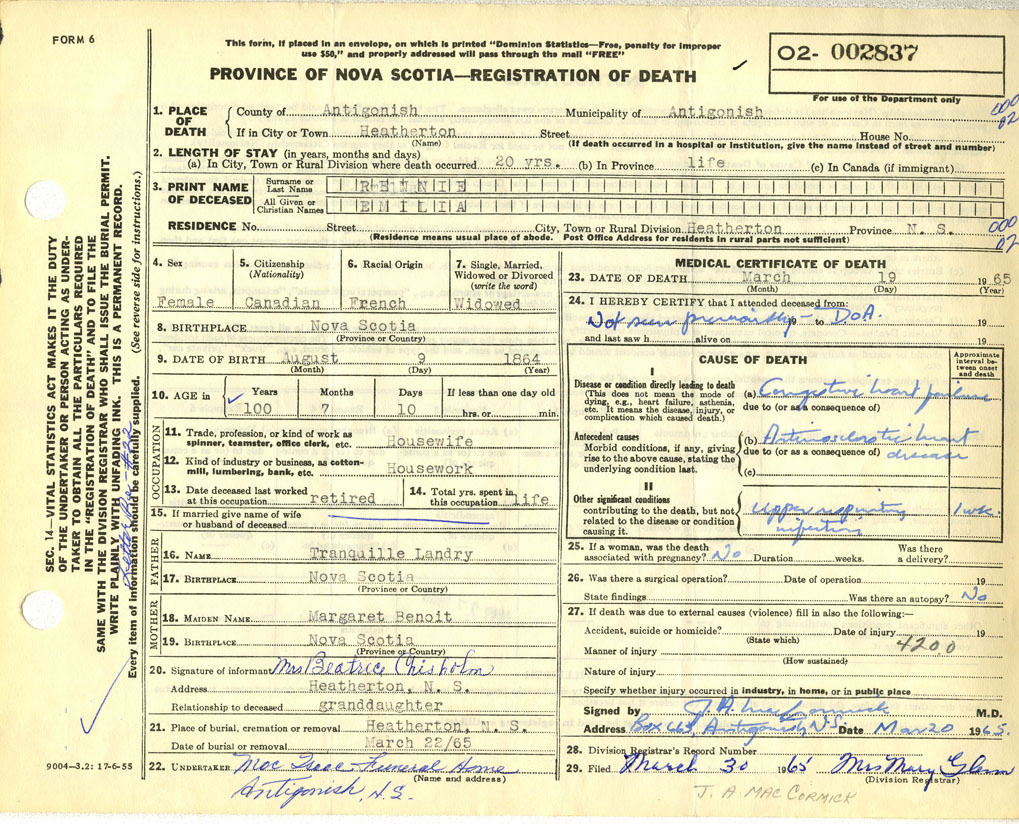 FORM 6
This form, if placed in an envelope, on which is printed "Dominion Statistics—Free, penalty for improper
use $50," and properly addressed will pass through the mail "FREE"
PROVINCE OF NOVA SCOTIA—REGISTRATION OF DEATH
02- 002837
For use of the Department only
1. PLACE OF DEATH
County of Antigonish Municipality of Antigonish
000
02
If in City or Town Heatherton Street House No.
(Name) (If death occurred in a hospital or institution, give the name instead of street and number)
2. LENGTH OF STAY (in years, months and days)
(a) In City, Town or Rural Division where death occurred 20 yrs. (b) In Province life (c) In Canada (if immigrant)
3. PRINT NAME OF DECEASED
Surname or Last Name RENNIE
All Given or Christian Names EMILIA
RESIDENCE No. Street City, Town or Rural Division Heatherton Province N. S.
000
02
(Residence means usual place of abode. Post Office Address for residents in rural parts not sufficient)
4. Sex Female
5. Citizenship (Nationality) Canadian
6. Racial Origin French
7. Single, Married, Widowed or Divorced (write the word) Widowed
8. BIRTHPLACE Nova Scotia
(Province or Country)
9. DATE OF BIRTH August 9 1864
(Month) (Day) (Year)
10. AGE in Years 100 Months 7 Days 10 If less than one day hrs. or min.
OCCUPATION
11. Trade, profession, or kind of work as spinner, teamster, office clerk, etc. Housewife
12. Kind of industry or business, as cotton-mill, lumbering, bank, etc. Housework
13. Date deceased last worked at this occupation retired
14. Total yrs. spent in this occupation life
15. If married give name of wife or husband of deceased
FATHER
16. NAME Tranquille Landry
17. BIRTHPLACE Nova Scotia
(Province or Country)
MOTHER
18. MAIDEN NAME Margaret Benoit
19. BIRTHPLACE Nova Scotia
(Province or Country)
20. Signature of informant Mrs Beatrice Chisholm
Address Heatherton, N. S.
Relationship to deceased granddaughter
21. Place of burial, cremation or removal Heatherton, N. S.
Date of burial or removal March 22/65
22. UNDERTAKER Mac Isaac Funeral Home
(Name and address)
Antigonish, N.S.
MEDICAL CERTIFICATE OF DEATH
23. DATE OF DEATH March 19 1965
(Month) (Day) (Year)
24. I HEREBY CERTIFY that I attended deceased from:
Not seen previously - 19 to D.O.A. 19
and last saw h alive on 19
CAUSE OF DEATH
Approximate interval between onset and death
I
Disease or condition directly leading to death
(This does not mean the mode of dying, e.g., heart failure, asthenia, etc. It means the disease, injury, or complication which caused death.)
(a) Congestive heart failure
due to (or as a consequence of)
Antecedent causes
Morbid conditions, if any, giving rise to the above cause, stating the underlying condition last.
(b) Arteriosclerotic heart
due to (or as a consequence of) disease
(c)
II
Other significant conditions
contributing to the death, but not related to the disease or condition causing it.
Upper respiratory
infection
1 wk.
25. If a woman, was the death associated with pregnancy? No Duration weeks. Was there a delivery?
26. Was there a surgical operation? Date of operation 19
State findings Was there an autopsy? No
27. If death was due to external causes (violence) fill in also the following:—
Accident, suicide or homicide? Date of injury 19
(State which)
Manner of injury 4200
(How sustained)
Nature of injury
Specify whether injury occurred in industry, in home, or in public place
Signed by J. A. MacCormick M.D.
Address Box 665, Antigonish, N.S. Date Mar 20 1965.
28. Division Registrar's Record Number
29. Filed March 30 1965 Mrs Mary Glenn
(Division Registrar)
J. A MAC CORMICK
SEC. 14—VITAL STATISTICS ACT MAKES IT THE DUTY
OF THE UNDERTAKER OR PERSON ACTING AS UNDER-
TAKER TO OBTAIN ALL THE PARTICULARS REQUIRED
IN THE "REGISTRATION OF DEATH" AND TO FILE THE
SAME WITH THE DIVISION REGISTRAR WHO SHALL ISSUE THE BURIAL PERMIT.
WRITE PLAINLY WITH UNFADING INK. THIS IS A PERMANENT RECORD.
Every item of information should be carefully supplied. (See reverse side for instructions.)
9004—3.2: 17-6-55